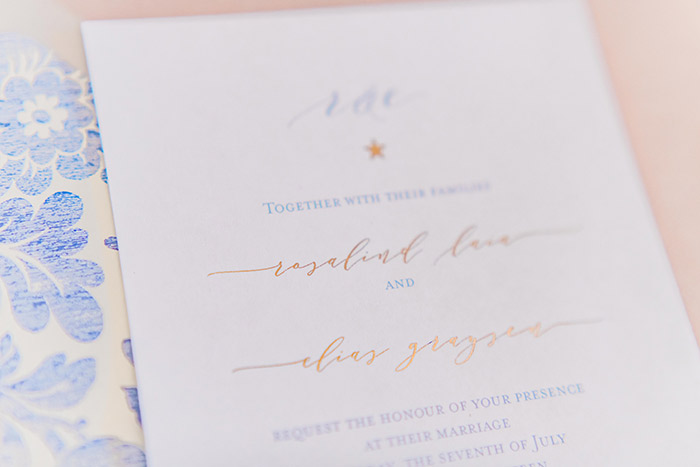 r & e
Together with their families
rosalind lara
and
elias graysen
request the honour of your presence
at their marriage
day, the seventh of July